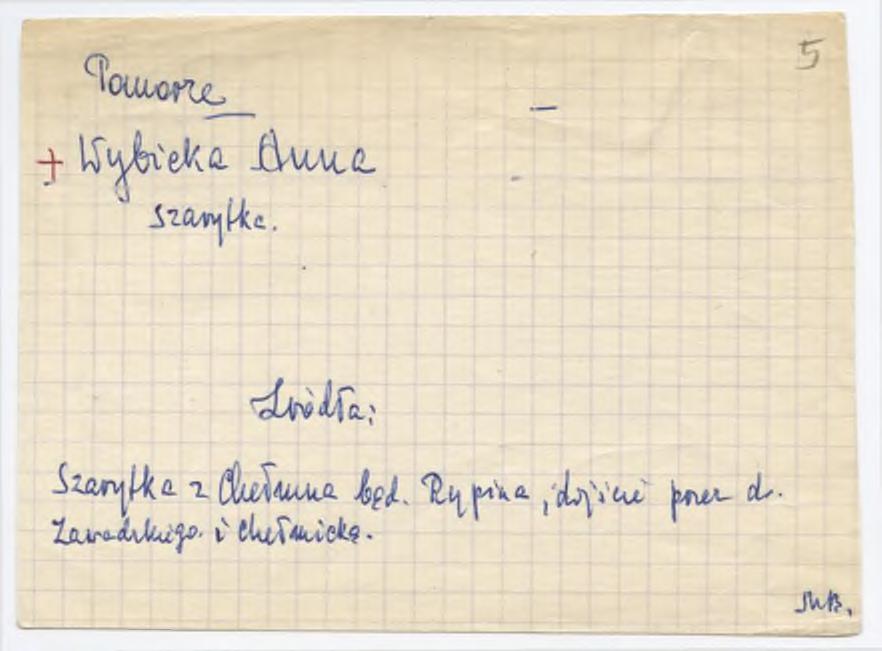 5
Pomorze
+ Wybicka Anna
szarytka.
Źródła:
Szarytka z Chełmna bąd. Rypina, dojście przez dr.
Zawadzkiego i Chełmicką.